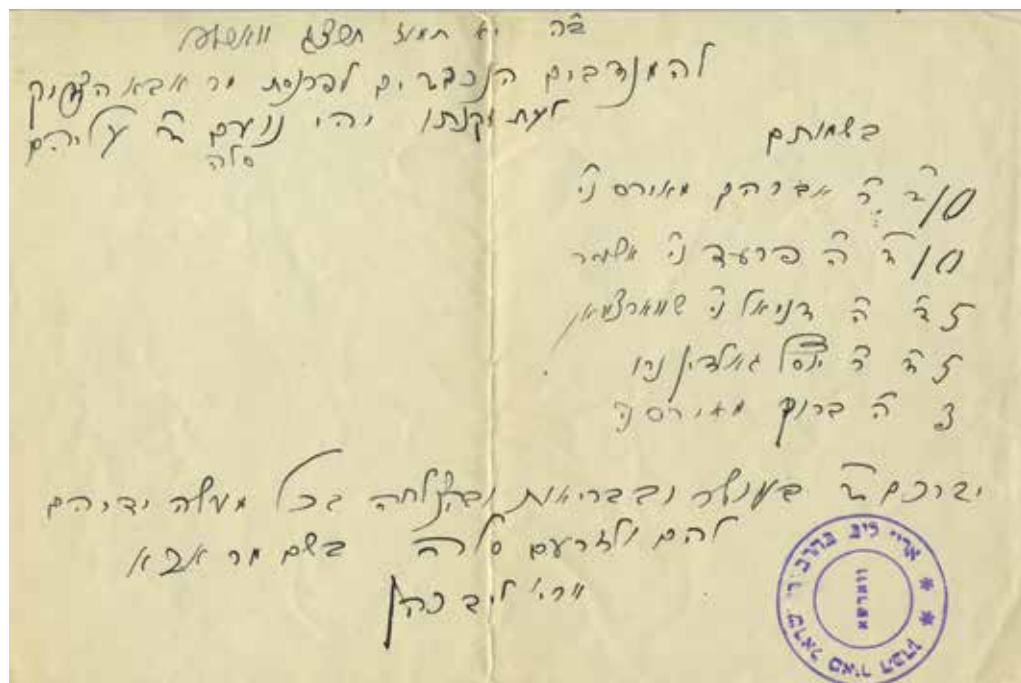 ב״ה יא תמוז תרצג ווארשא
להמנדבים הנכבדים לפרנסת מר אבא הצדיק
לעת זקנתו יהי נועם ה׳ עליהם
סלה
בשמותם
ה׳ אברהם מאירס ני׳
ה׳ פרעד ני׳ אשמר
ה׳ דניאל ני׳ שווארצמאן
ה׳ יוסל גאלדין נרו
ה׳ ברוך מאירס ני׳
יברכם ה׳ בעושר ובבריאות ובהצלחה בכל מעשה ידיהם
להם ולזרעם סלה בשם מר אבא
ארי׳ ליב כהן
ארי׳ ליב בהרב״ר ישראל מאיר הכהן
ווארשא